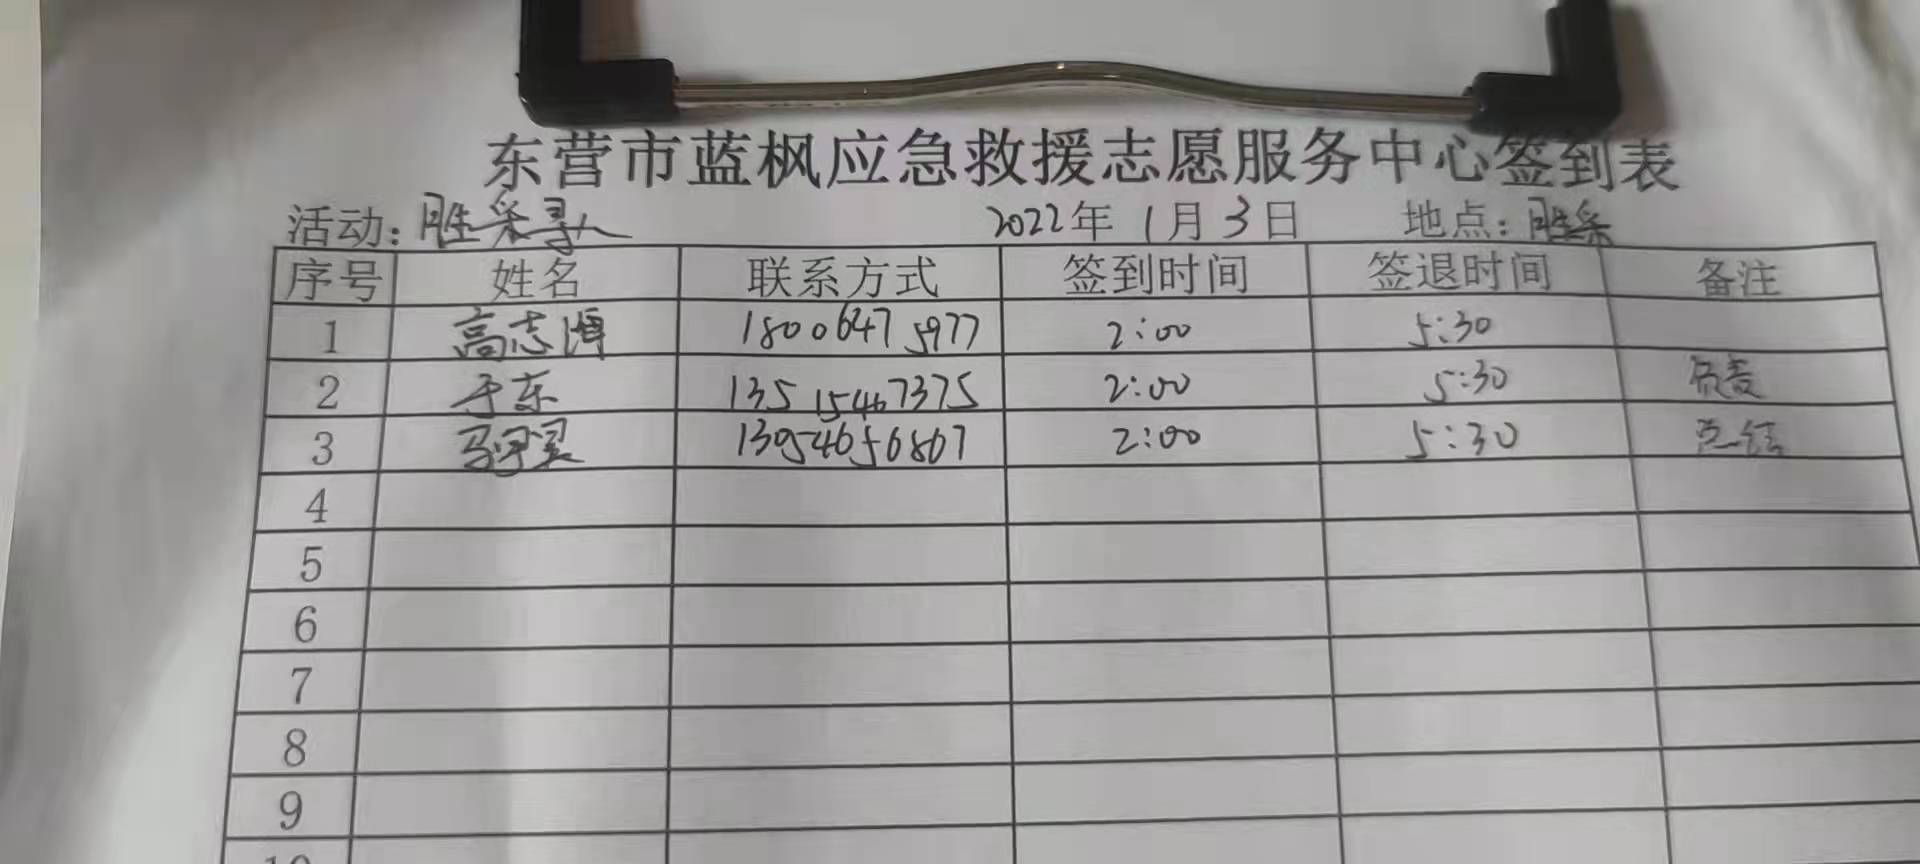 东营市蓝枫应急救援志愿服务中心签到表
活动：胜采寻人 2022年 1月 3日 地点：胜采
序号 姓名 联系方式 签到时间 签退时间 备注
1 高志博 18006475977 2:00 5:30
2 于东 13515467375 2:00 5:30 负责
3 2:00 5:30 总结
4
5
6
7
8
9
10